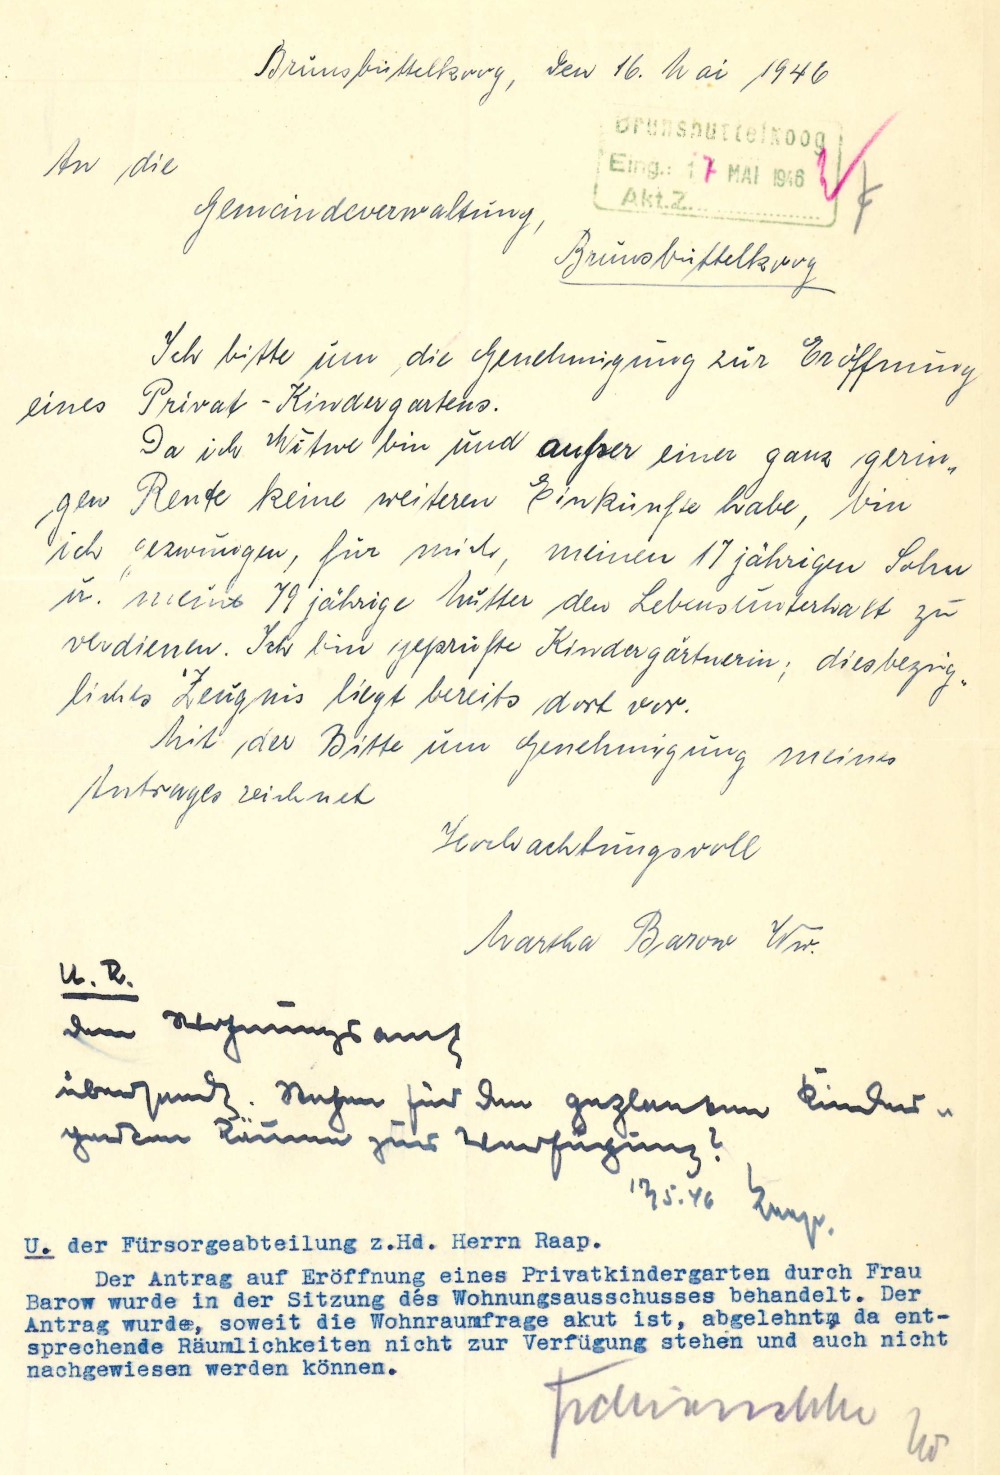 Brunsbüttelkoog, den 16. Mai 1946
Brunsbüttelkoog
Eing.: 17 MAI 1946
Akt.Z.
An die
Gemeindeverwaltung,
Brunsbüttelkoog
Ich bitte um die Genehmigung zur Eröffnung
eines Privat-Kindergartens.
Da ich Witwe bin und außer einer ganz gerin„
gen Rente keine weiteren Einkünfte habe, bin
ich gezwungen, für mich, meinen 17 jährigen Sohn
u. meine 79 jährige Mutter den Lebensunterhalt zu
verdienen. Ich bin geprüfte Kindergärtnerin; diesbezüg„
liches Zeugnis liegt bereits dort vor.
Mit der Bitte um Genehmigung meines
Antrages zeichnet
Hochachtungsvoll
Martha Barow Ww.
U. R.
dem Wohnungsamt
übersandt. Stehen für den geplanten Kinder„
garten Räume zur Verfügung?
17/5.46
U. der Fürsorgeabteilung z.Hd. Herrn Raap.
Der Antrag auf Eröffnung eines Privatkindergarten durch Frau
Barow wurde in der Sitzung des Wohnungsausschusses behandelt. Der
Antrag wurde, soweit die Wohnraumfrage akut ist, abgelehnt, da ent-
sprechende Räumlichkeiten nicht zur Verfügung stehen und auch nicht
nachgewiesen werden können.